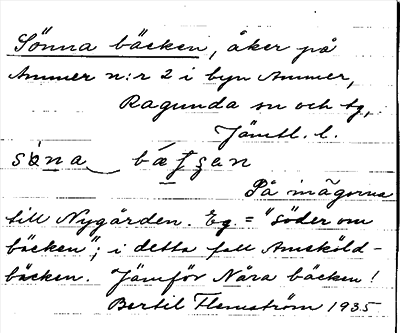 Sönna bäcken, åker på
Ammer n:r 2 i byn Ammer,
Ragunda sn och tg,
Jämtl. l.
På inägorna
till Nygården. Eg = "Söder om
bäcken"; i detta fall Ameköld-
bäcken. Jämför Nåra bäcken!
Bertil Flemström 1935